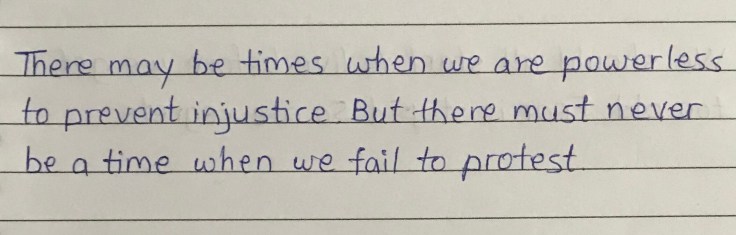 There may be times when we are powerless
to prevent injustice. But there must never
be a time when we fail to protest.